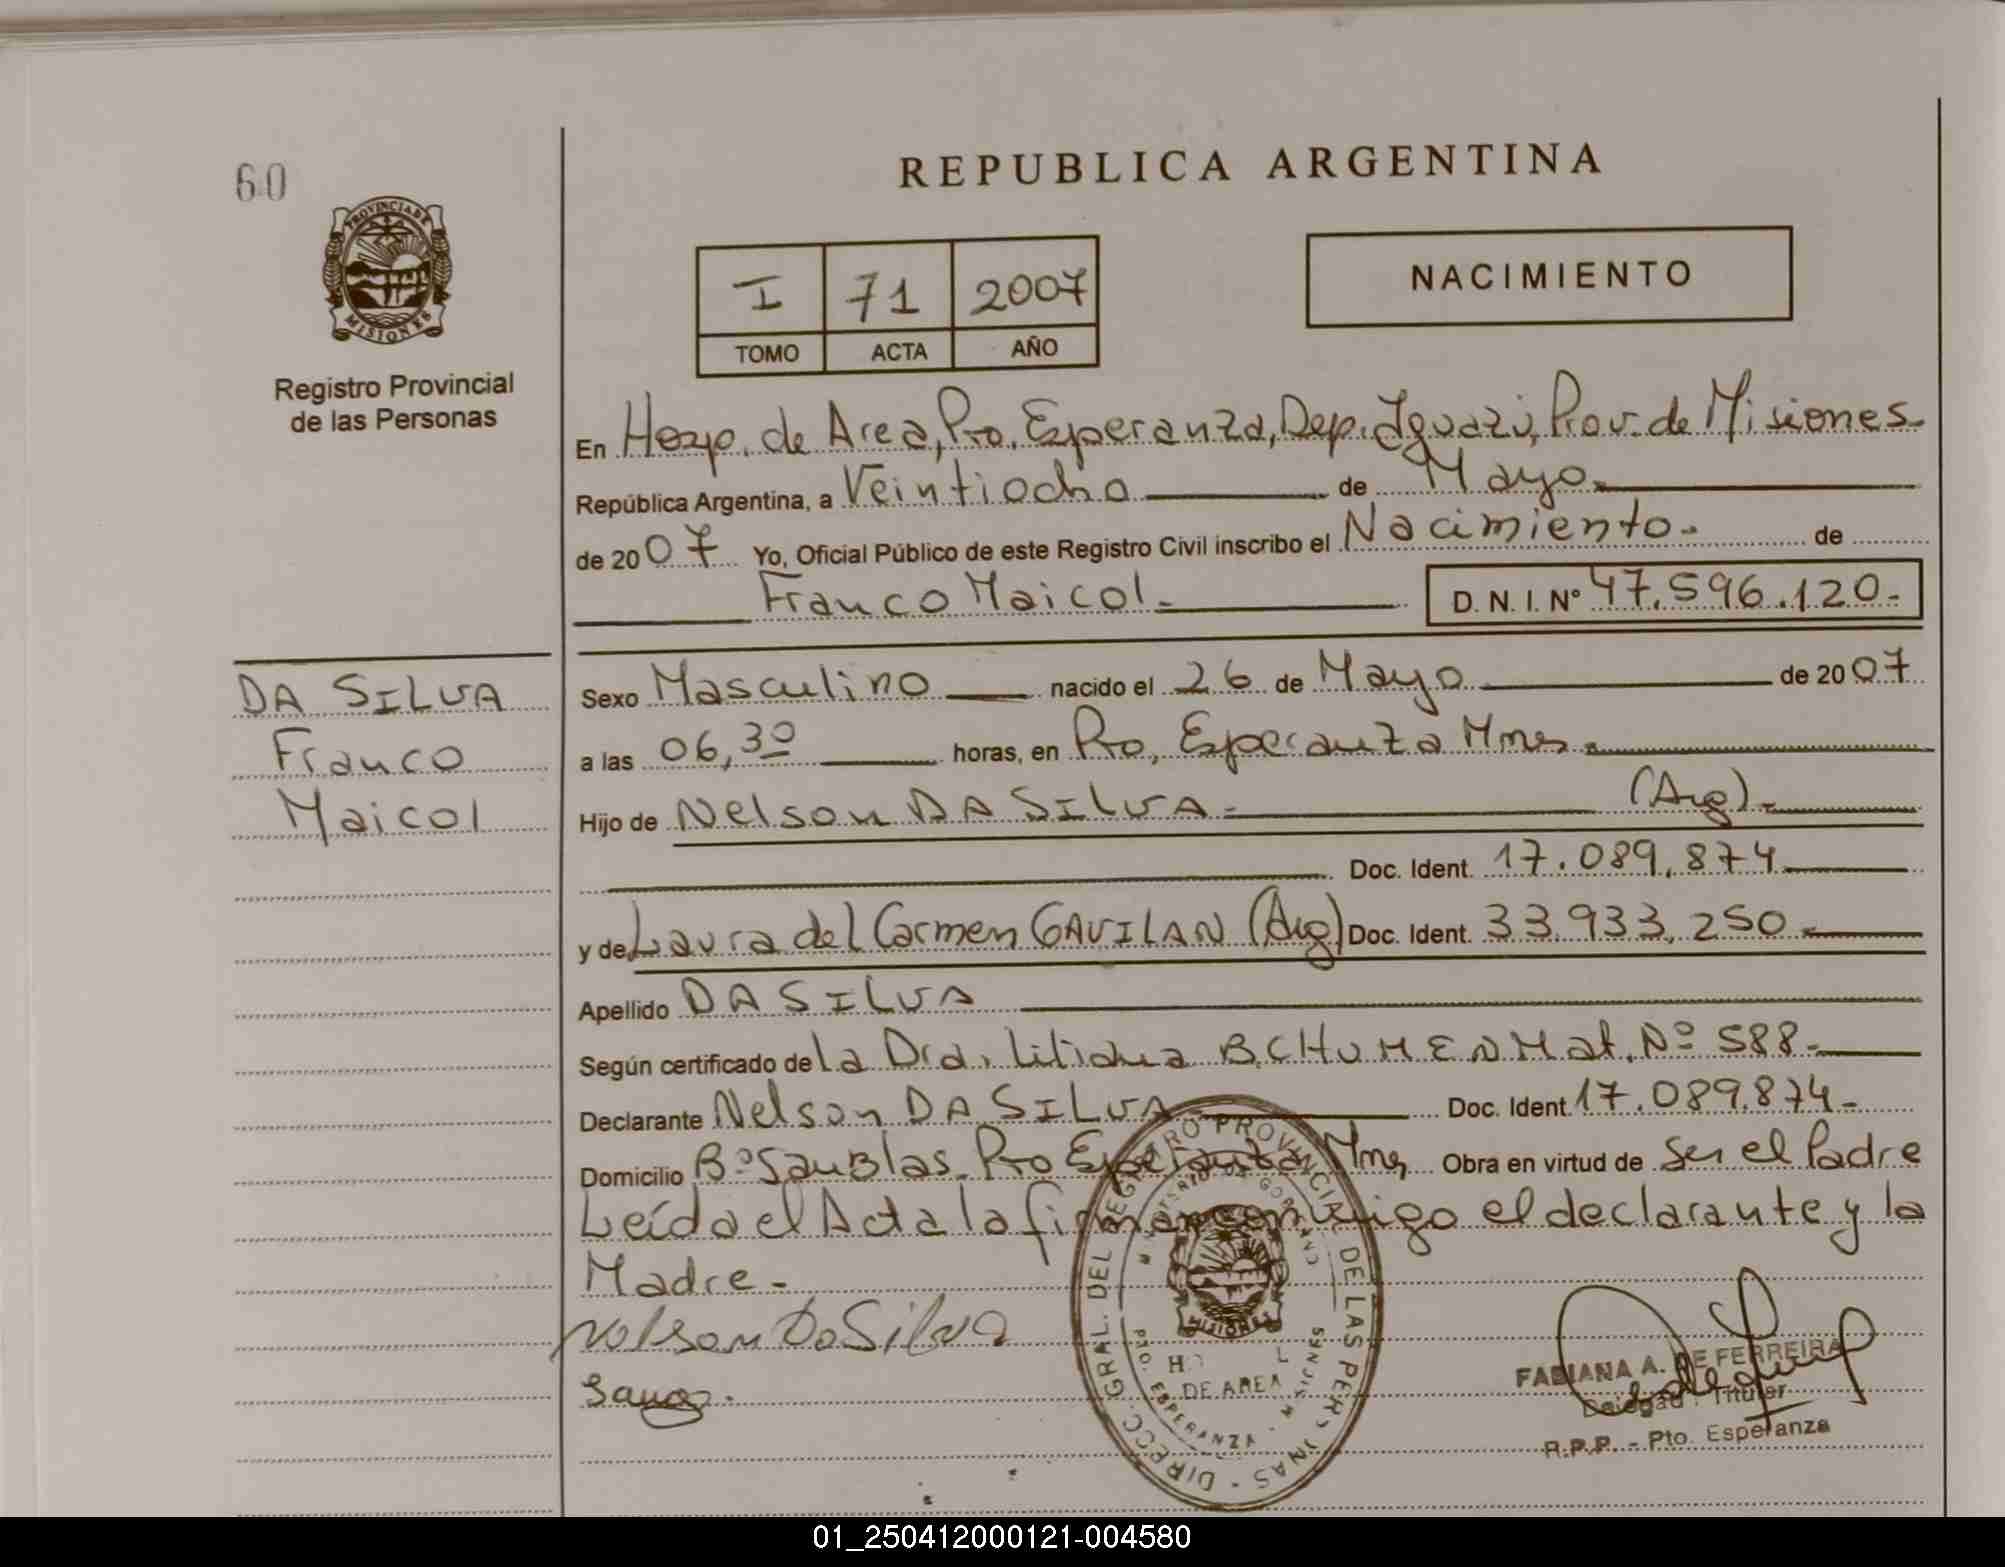 60
PROVINCIA DE
MISIONES
Registro Provincial
de las Personas
REPUBLICA ARGENTINA
I 71 2007
TOMO ACTA AÑO
NACIMIENTO
En Hosp. de Area, Pto. Esperanza, Dep. Iguazú, Prov. de Misiones
República Argentina, a Veintiocho de Mayo
de 2007 Yo, Oficial Público de este Registro Civil inscribo el Nacimiento. de
Franco Maicol. D.N.I. Nº 47.596.120.-
DA SILVA
Franco
Maicol
Sexo Masculino nacido el 26 de Mayo de 2007
a las 06,30 horas, en Pto, Esperanza Mnes.
Hijo de Nelson DA SILVA.- (Arg).-
Doc. Ident. 17.089.874
y de Laura del Carmen GAVILAN (Arg) Doc. Ident. 33.933.250.-
Apellido DA SILVA
Según certificado de la Dra. Liliana B. CHUMEN Mat. Nº 588.-
Declarante Nelson DA SILVA Doc. Ident. 17.089.874-
Domicilio Bº San Blas. Pto Esperanza Mnes Obra en virtud de Ser el Padre
Leída el Acta la firman conmigo el declarante y la
Madre.-
Nelson Da Silva
DIRECC. GRAL. DEL REGISTRO PROVINCIAL DE LAS PERSONAS
DE AREA
ESPERANZA - MISIONES
MISIONES
FABIANA A. DE FERREIRA
Titular
R.P.P. - Pto. Esperanza
01_250412000121-004580